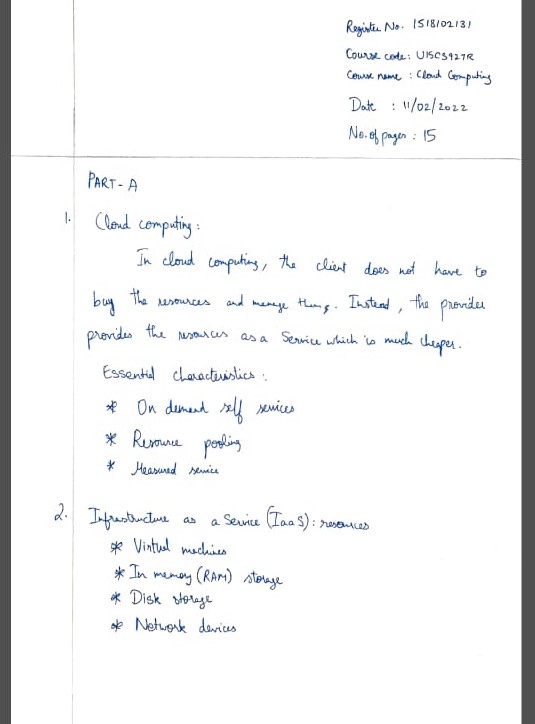 Register No. 151810213)
Course code: U15CS927R
Course name : Cloud Computing
Date : 11/02/2022
No. of pages : 15
PART - A
1. Cloud computing :
In cloud computing, the client does not have to
buy the resources and manage things. Instead, the provider
provides the resources as a Service which is much cheaper.
Essential characteristics :
* On demand self services
* Resource pooling
* Measured service
2. Infrastructure as a Service (IaaS) : resources
* Virtual machines
* In memory (RAM) storage
* Disk storage
* Network devices